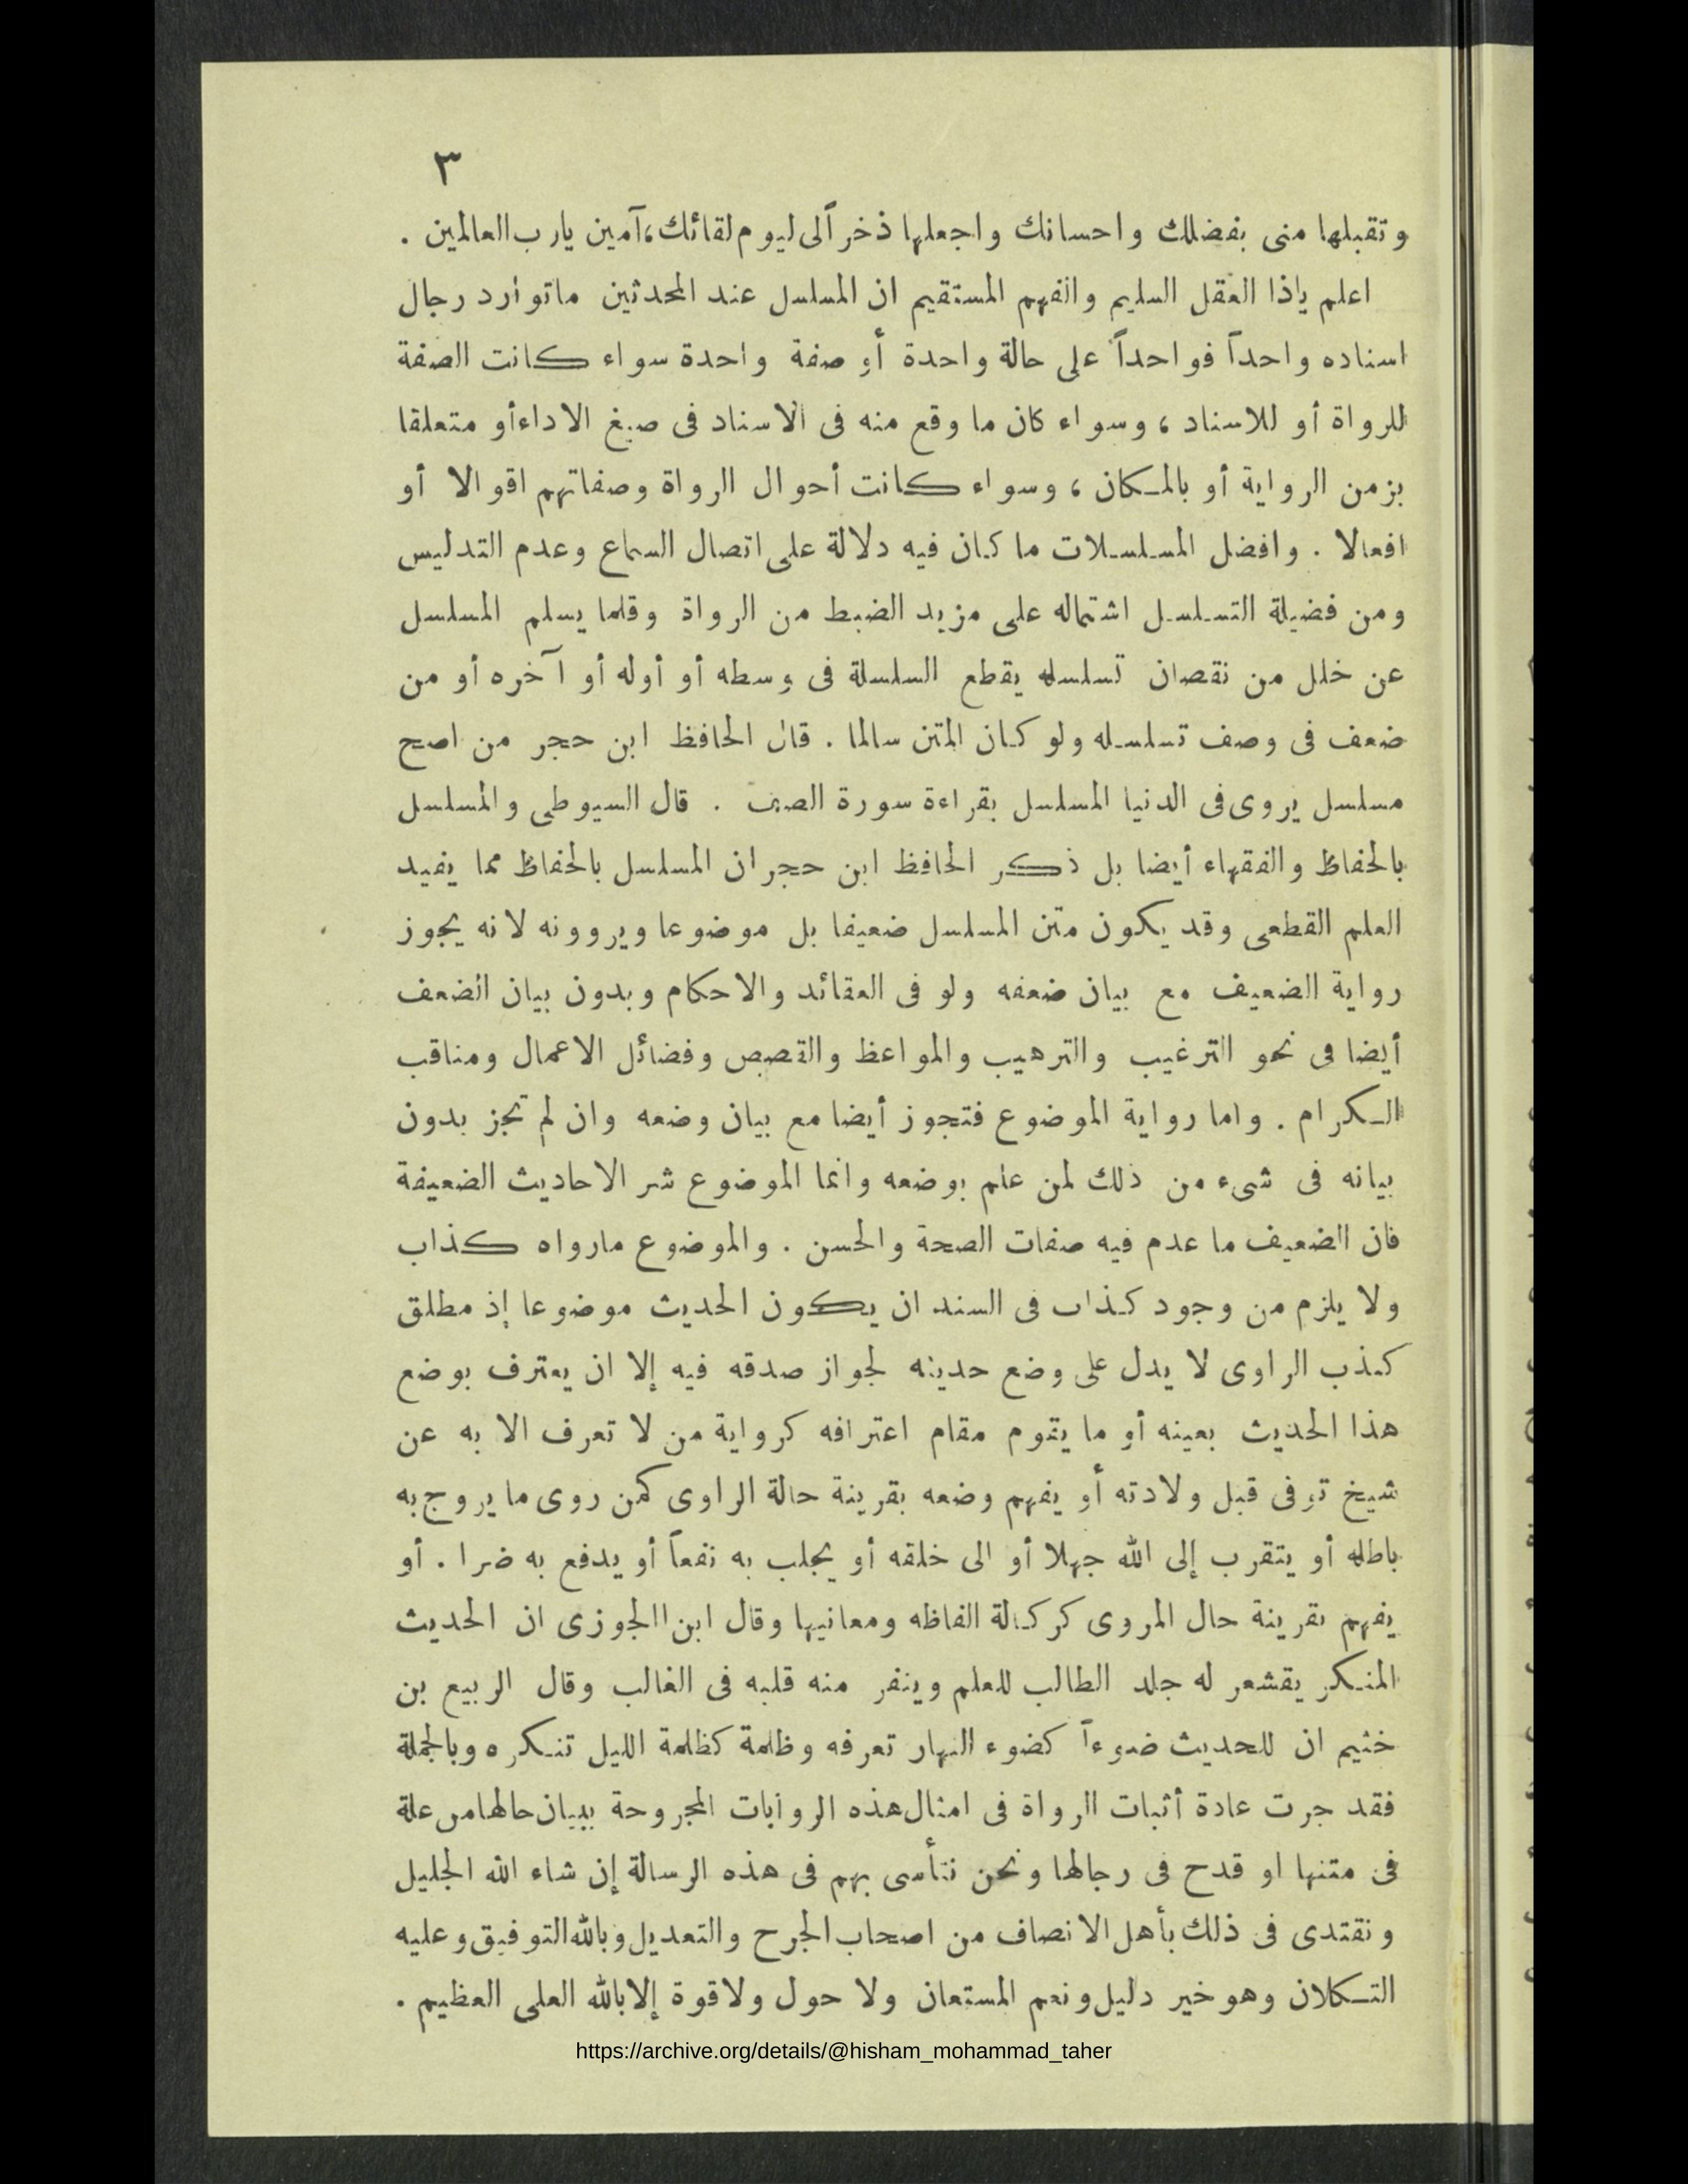 ٣
وتقبلها منى بفضلك واحسانك واجعلها ذخراً لى ليوم لقائك، آمين يارب العالمين .
اعلم ياذا العقل السليم والفهم المستقيم ان المسلسل عند المحدثين ماتوارد رجال
اسناده واحداً فواحداً على حالة واحدة أو صفة واحدة سواء كانت الصفة
للرواة أو للاسناد ، وسواء كان ما وقع منه فى الاسناد فى صيغ الاداء أو متعلقا
بزمن الرواية أو بالمكان ، وسواء كانت أحوال الرواة وصفاتهم اقوالا أو
افعالا . وافضل المسلسلات ما كان فيه دلالة على اتصال السماع وعدم التدليس
ومن فضيلة التسلسل اشتماله على مزيد الضبط من الرواة وقلما يسلم المسلسل
عن خلل من نقصان تسلسله يقطع السلسلة فى وسطه أو أوله أو آخره أو من
ضعف فى وصف تسلسله ولو كان المتن سالما . قال الحافظ ابن حجر من اصح
مسلسل يروى فى الدنيا المسلسل بقراءة سورة الصف . قال السيوطى والمسلسل
بالحفاظ والفقهاء أيضا بل ذكر الحافظ ابن حجر ان المسلسل بالحفاظ مما يفيد
العلم القطعى وقد يكون متن المسلسل ضعيفا بل موضوعا ويروونه لانه يجوز
رواية الضعيف مع بيان ضعفه ولو فى العقائد والاحكام وبدون بيان الضعف
أيضا فى نحو الترغيب والترهيب والمواعظ والقصص وفضائل الاعمال ومناقب
الكرام . واما رواية الموضوع فتجوز أيضا مع بيان وضعه وان لم تجز بدون
بيانه فى شىء من ذلك لمن علم بوضعه وانما الموضوع شر الاحاديث الضعيفة
فان الضعيف ما عدم فيه صفات الصحة والحسن . والموضوع مارواه كذاب
ولا يلزم من وجود كذاب فى السند ان يكون الحديث موضوعا إذ مطلق
كذب الراوى لا يدل على وضع حديثه لجواز صدقه فيه إلا ان يعترف بوضع
هذا الحديث بعينه أو ما يقوم مقام اعترافه كرواية من لا تعرف الا به عن
شيخ توفى قبل ولادته أو يفهم وضعه بقرينة حالة الراوى كمن روى ما يروج به
باطله أو يتقرب إلى الله جهلا أو الى خلقه أو يجلب به نفعاً أو يدفع به ضرا . أو
يفهم بقرينة حال المروى كركالة الفاظه ومعانيها وقال ابن الجوزى ان الحديث
المنكر يقشعر له جلد الطالب للعلم وينفر منه قلبه فى الغالب وقال الربيع بن
خثيم ان للحديث ضوءاً كضوء النهار تعرفه وظلمة كظلمة الليل تنكره وبالجملة
فقد جرت عادة أثبات الرواة فى امثال هذه الروايات المجروحة ببيان حالها من علة
فى متنها او قدح فى رجالها ونحن نتأسى بهم فى هذه الرسالة إن شاء الله الجليل
ونقتدى فى ذلك بأهل الانصاف من اصحاب الجرح والتعديل وبالله التوفيق وعليه
التكلان وهو خير دليل ونعم المستعان ولا حول ولاقوة إلا بالله العلى العظيم .
https://archive.org/details/@hisham_mohammad_taher